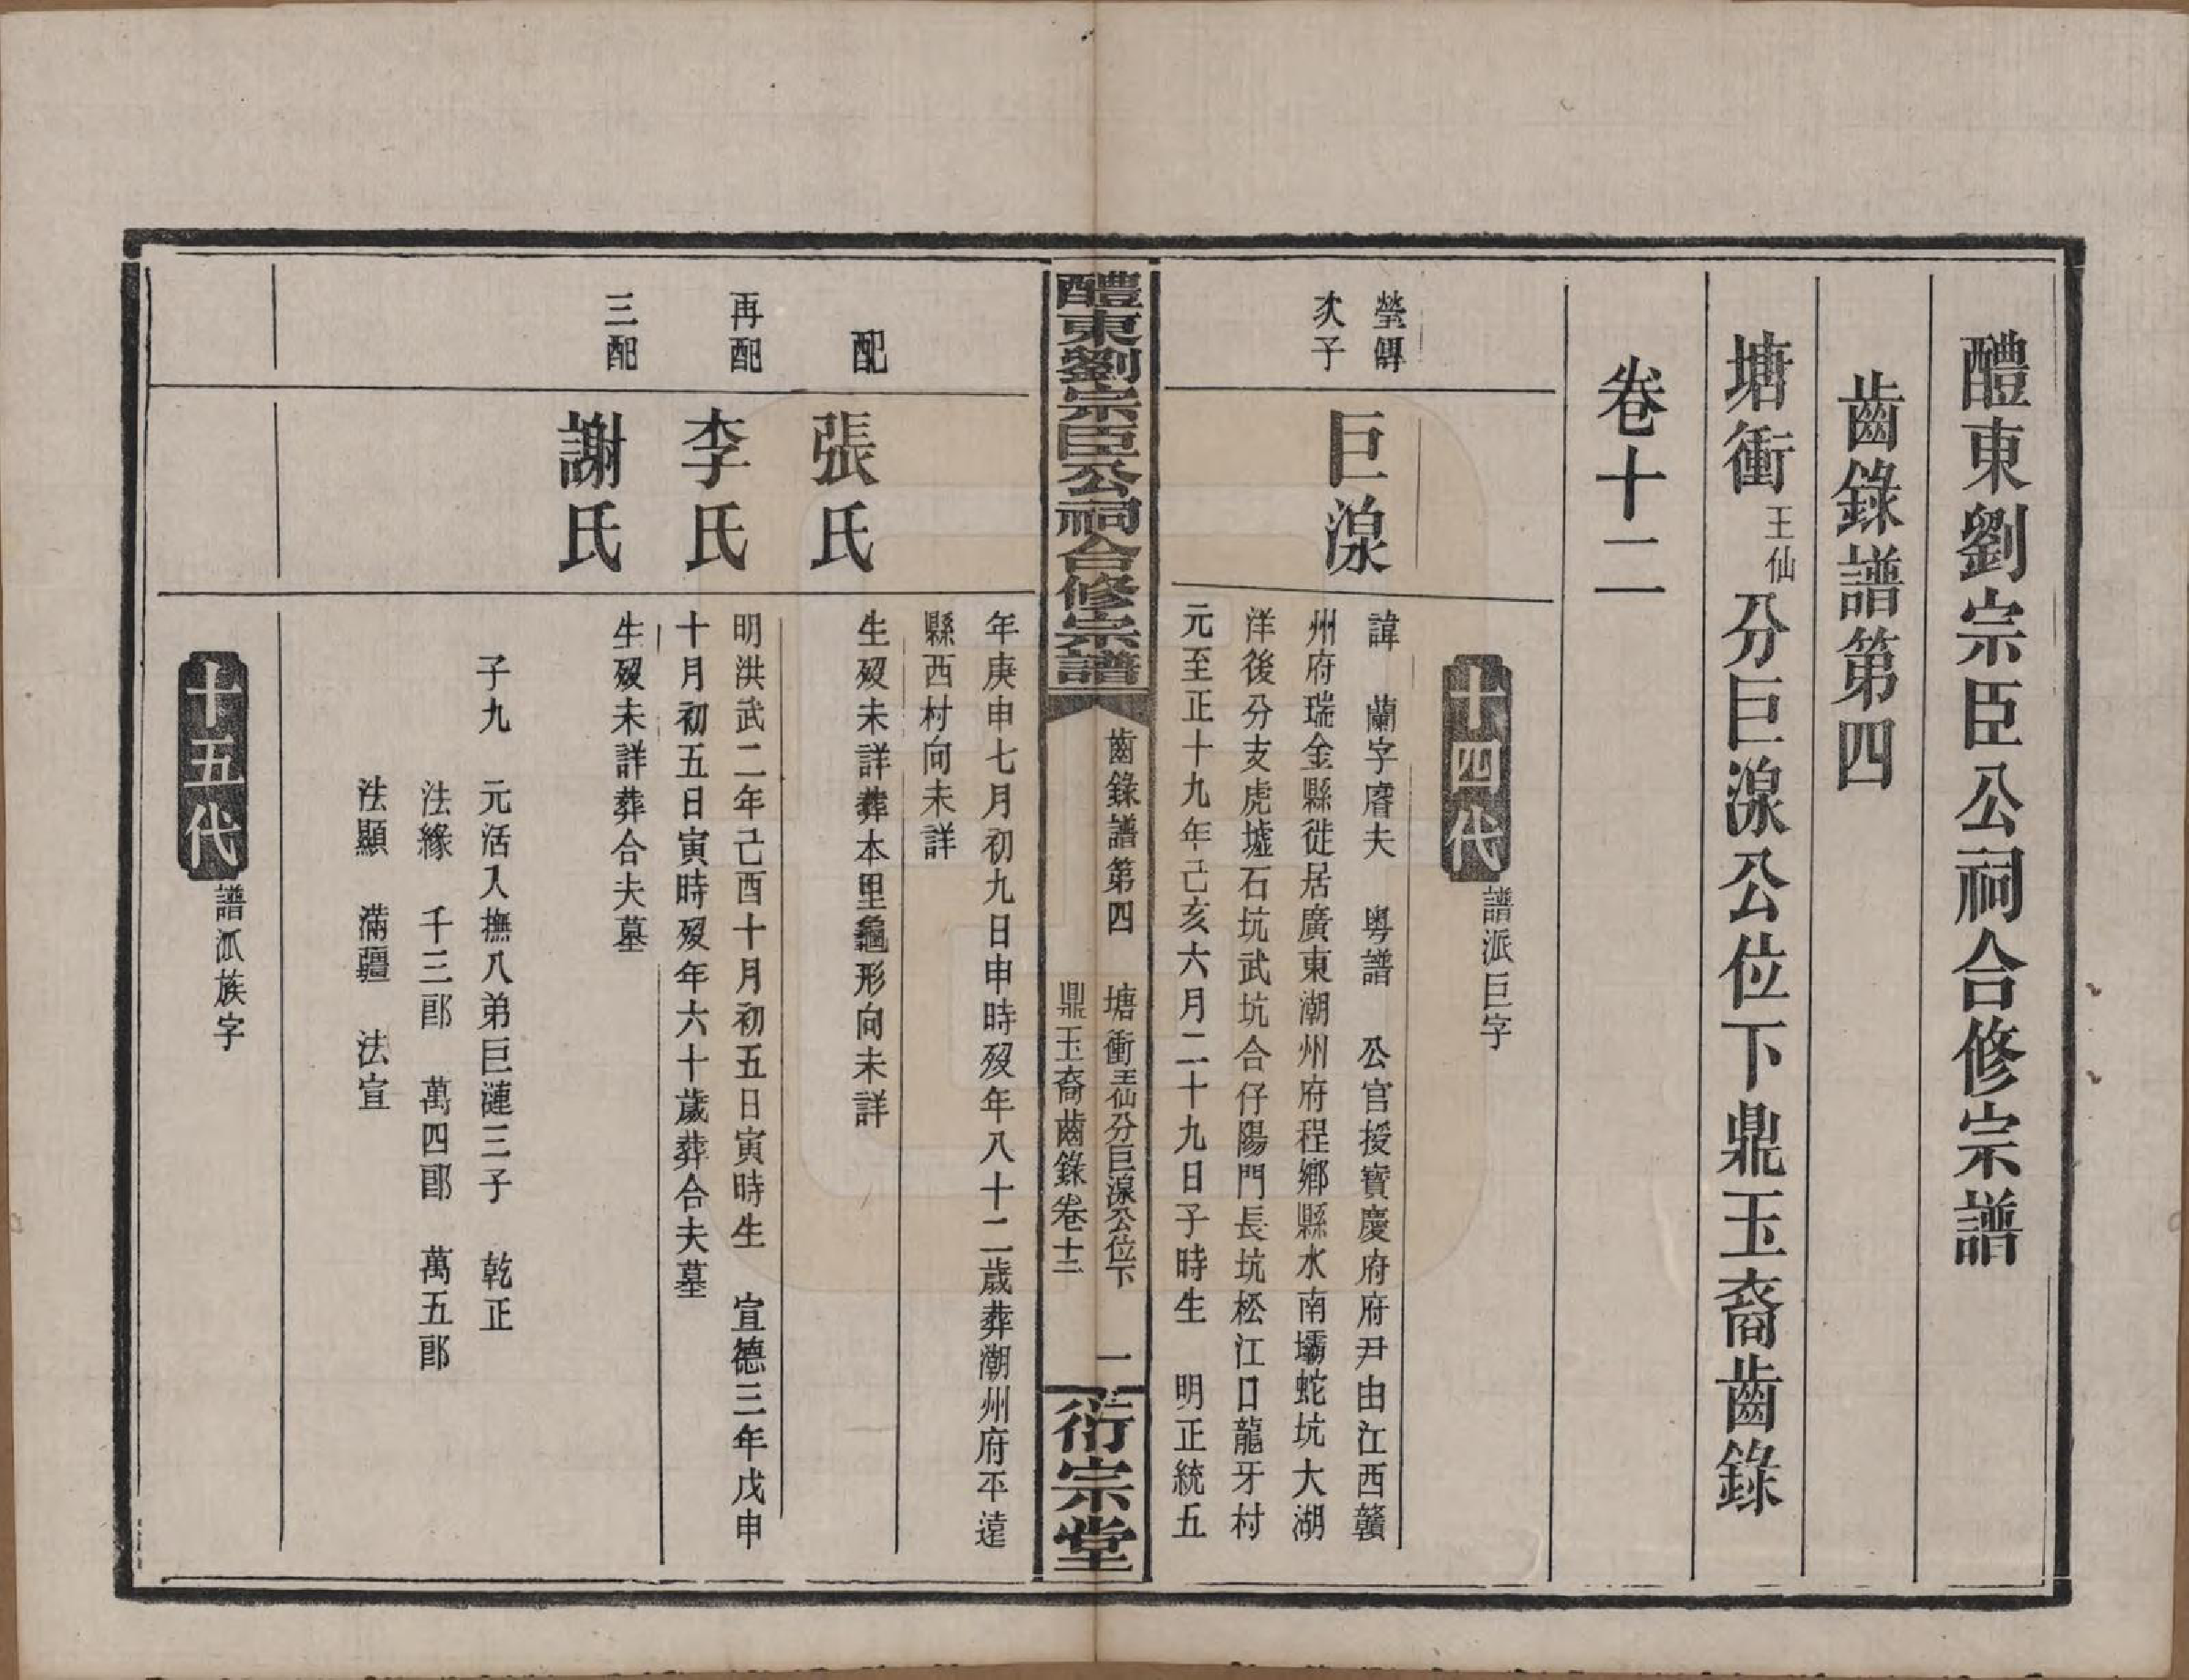 醴東劉宗臣公祠合修宗譜
齒錄譜第四
塘衝王仙分巨湶公位下鼎玉裔齒錄
卷十二
十四代譜派巨字
瑩傳
次子
巨湶
諱　蘭字廥夫　粵譜　公官授寶慶府府尹由江西贛
州府瑞金縣徙居廣東潮州府程鄉縣水南壩蛇坑大湖
洋後分支虎墟石坑武坑合仔陽門長坑松江口龍牙村
元至正十九年己亥六月二十九日子時生　明正統五
醴東劉宗臣公祠合修宗譜
齒錄譜第四　塘衝王仙分巨湶公位下
鼎玉裔齒錄卷十二
一
衍宗堂
年庚申七月初九日申時歿年八十二歲葬潮州府平遠
縣西村向未詳
配
張氏
生歿未詳葬本里龜形向未詳
再配
李氏
明洪武二年己酉十月初五日寅時生　宣德三年戊申
十月初五日寅時歿年六十歲葬合夫墓
三配
謝氏
生歿未詳葬合夫墓
子九　元活入撫八弟巨漣三子　乾正
法緣　千三郎　萬四郎　萬五郎
法顯　滿疆　法宣
十五代譜派族字